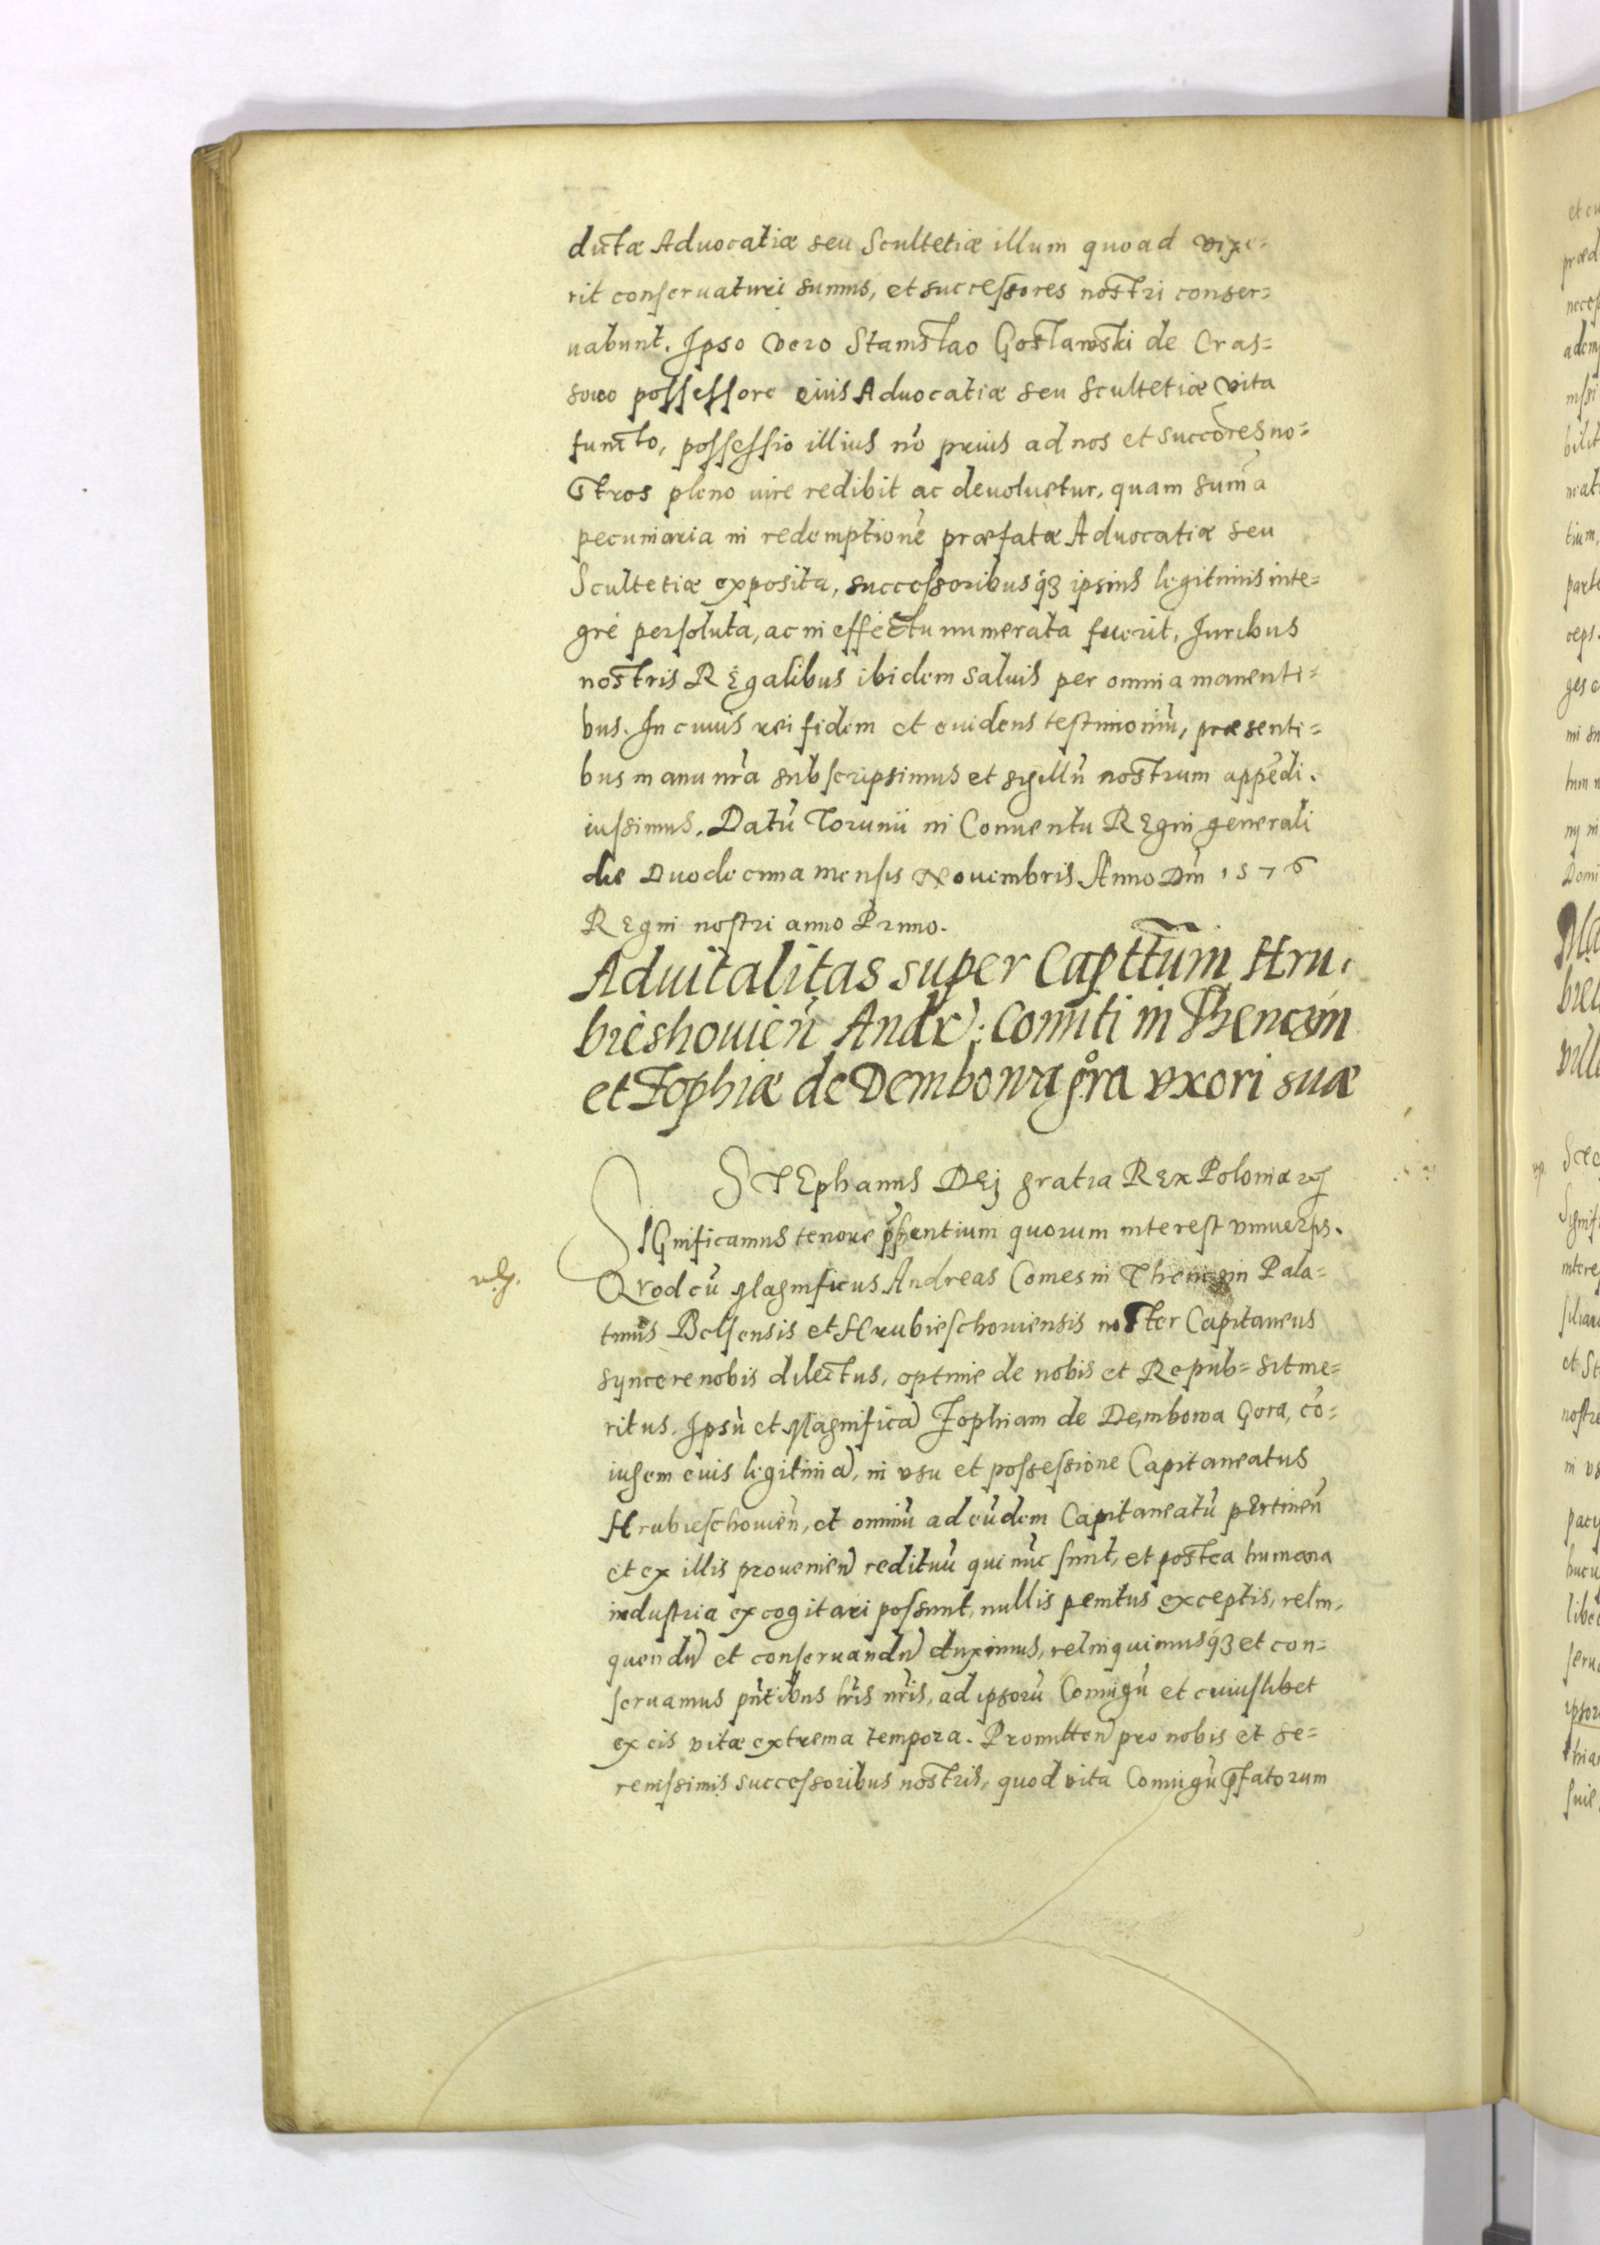 dictæ Aduocatiæ seu Scultetiæ illum quoad vixe=
rit conseruaturi sumus, et successores nostri conser=
uabunt. Ipso vero Stanislao Goslawski de Cras=
sowo possessore eius Aduocatiæ seu Scultetiæ vita
functo, possessio illius nō prius ad nos et succōres no=
stros pleno iure redibit ac deuoluetur, quam sum̄a
pecuniaria in redemptionē præfatæ Aduocatiæ seu
Scultetiæ exposita, successoribusq́ꝫ ipsius legitimis inte=
grè persoluta, ac in effectu numerata fuerit, Iuribus
nostris REgalibus ibidem saluis per omnia manenti=
bus. In cuius rei fidem et euidens testimoniū, præsenti=
bus manu nr̄a subscripsimus et sigillū nostrum appēdi.
iussimus. Datū Torunii in Conuentu REgni generali
die Duodecima mensis Nouembris Anno Dn̄i 1576
REgni nostri anno Primo.
Aduitalitas super Capttūm Hru.
bieshouien̄ Andr: Comiti in Thenczin
et Zophiæ de Dembowa gora vxori suæ
STEphanus DEj gratia REx Poloniæ
SIGnificamus tenore pn̄sentium quorum interest vniuersis.
Qvod cū Magnificus Andreas Comes in Thenczin Pala=
tinus Belsensis et Hrubieschouiensis noster Capitaneus
syncere nobis dilectus, optime de nobis et Repub= sit me=
ritus. Ipsū et Magnificā Zophiam de Dembowa Gora, cō=
iugem euis legitimā, in vsu et possessione Capitaneatus
Hrubieschouien̄, et omniū ad eūdem Capitaneatū pertinen̄
et ex illis prouenien̄ redituū qui nūc sunt, et postea humana
industria excogitari possunt, nullis penitus exceptis, relin.
quendū et conseruandū duximus, relinquimusq́ꝫ et con=
seruamus pn̄tibus lr̄is nr̄is, ad ipsorū Coniugū et cuiuslibet
ex eis vitæ extrema tempora. Promitten̄ pro nobis et se=
renissimis successoribus nostris, quod vita Coniugū p̄fatorum